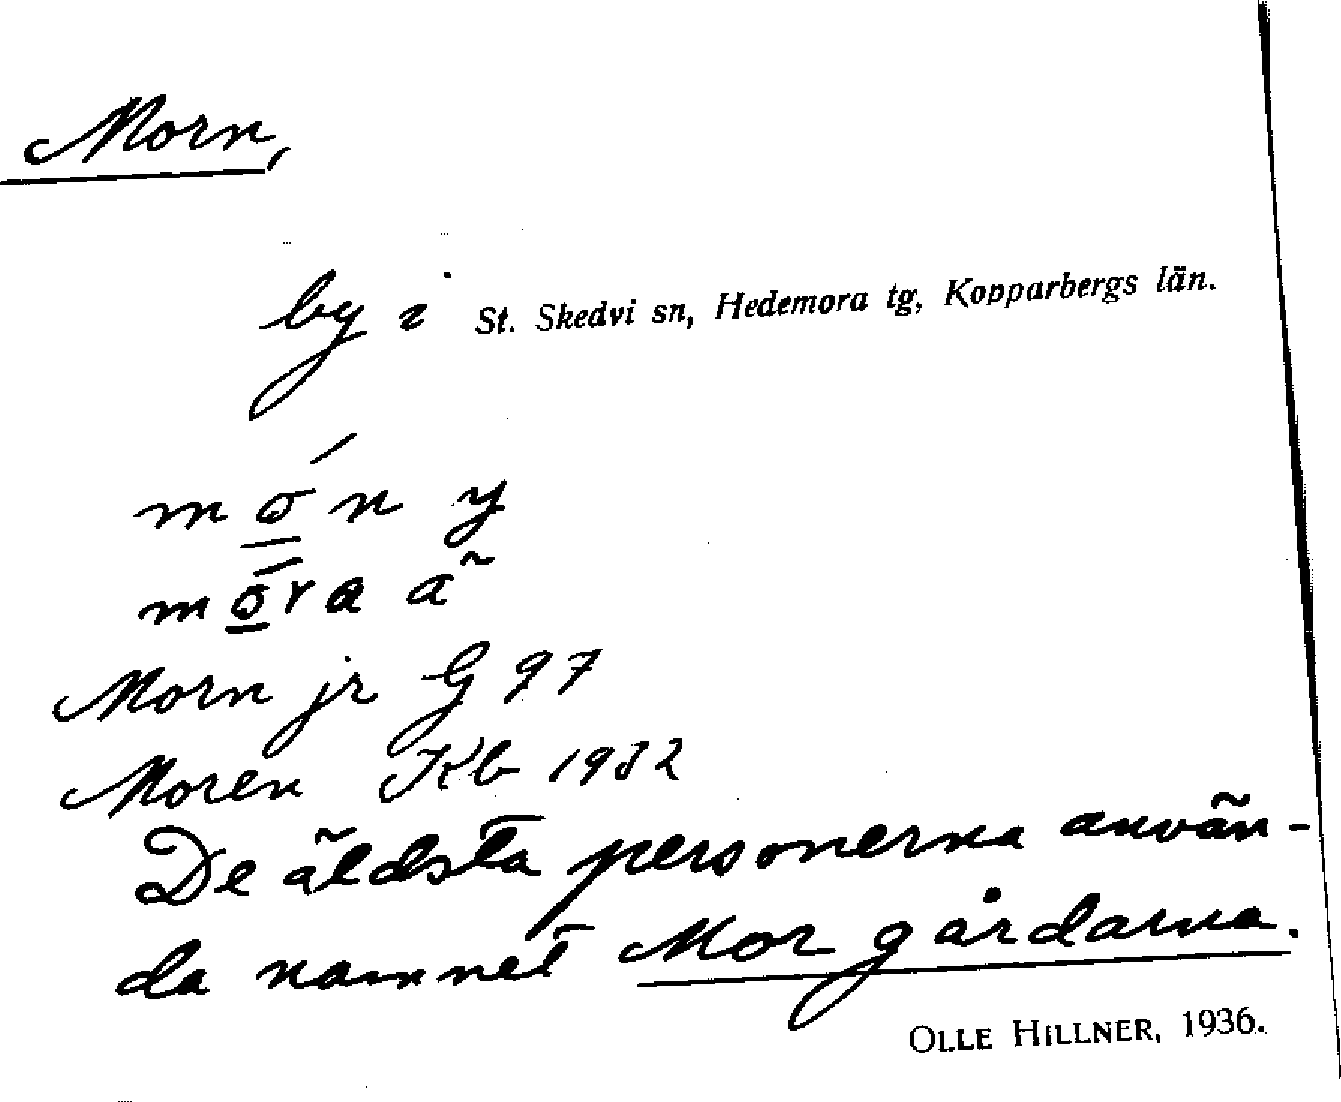 Morn,
by i St. Skedvi sn, Hedemora tg, Kopparbergs län.
món y
mōra ã
Morn jr G 97
Moren Kb 1932
De äldsta personerna använ-
da namnet Mor gårdarna.
OLLE HILLNER, 1936.